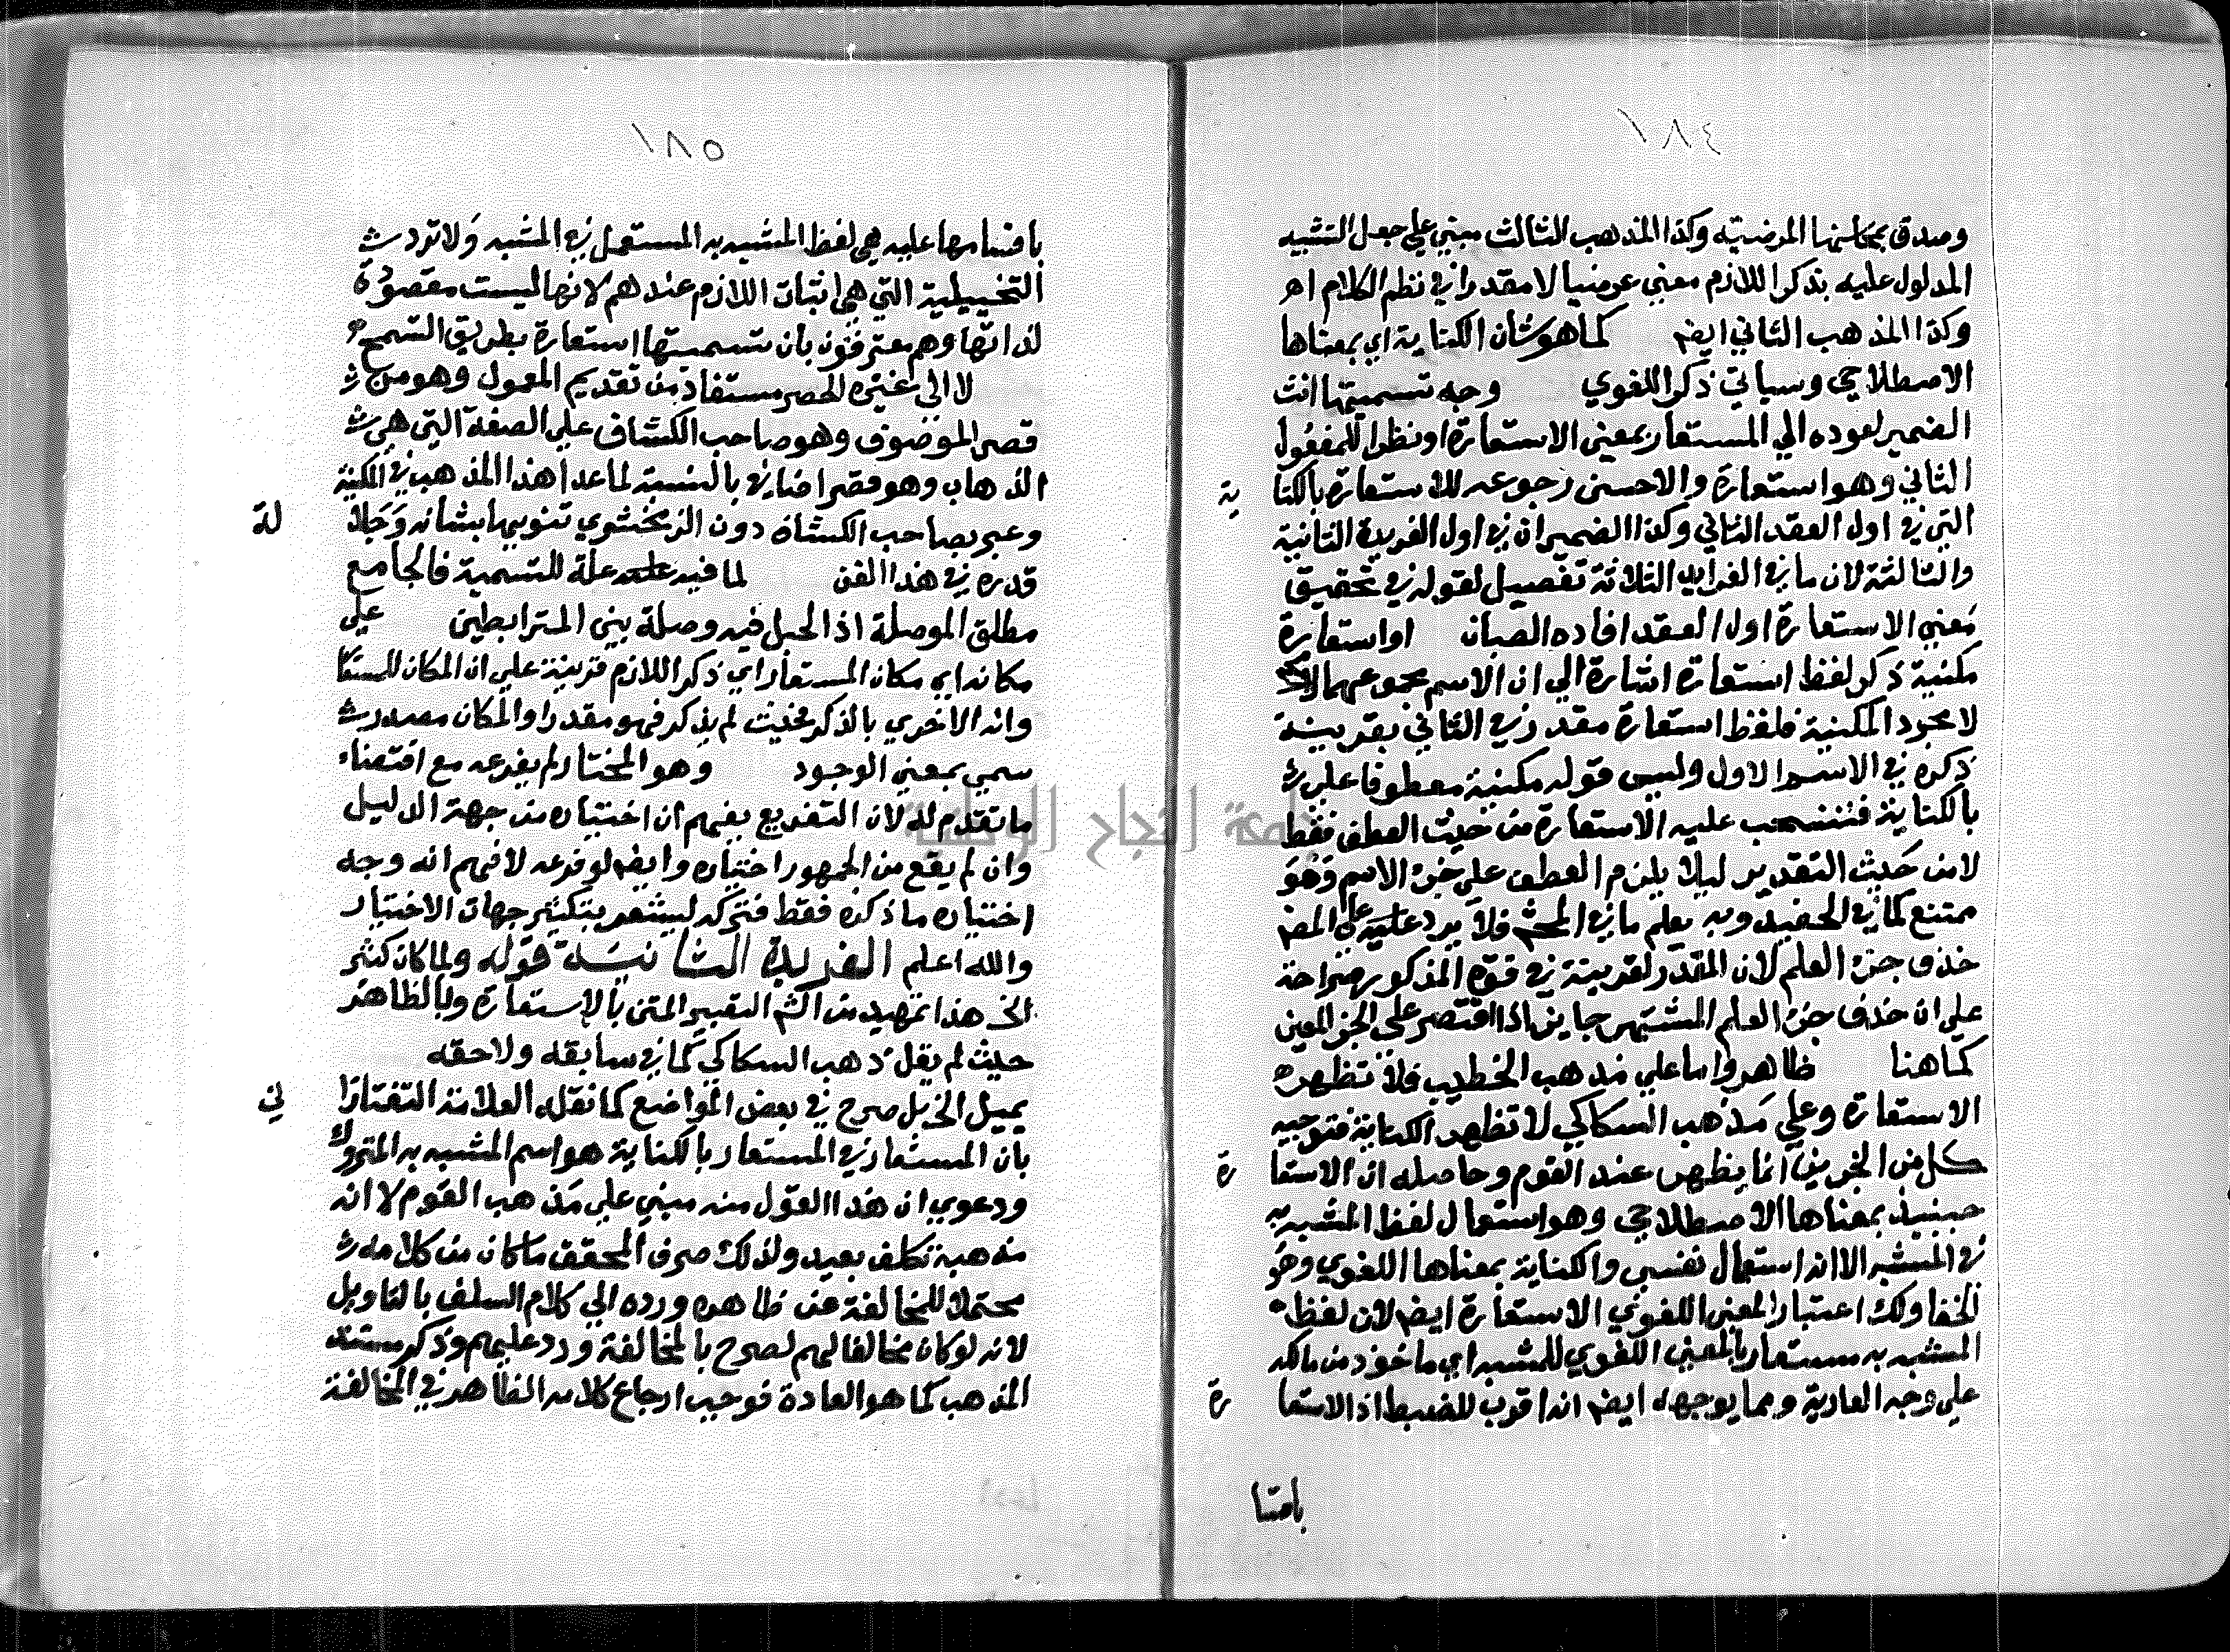 ١٨٤
وصدق بمحاسنها المرضية وكذا المذهب الثالث مبني علي جعل التشبيه
المدلول عليه بذكر اللازم معني عرضيا لا مقدرا في نظم الكلام اهـ
وكذا المذهب الثاني ايضا كما هو شان الكناية اي بمعناها
الاصطلاحي وسياتي ذكر اللغوي وجه تسميتها انث
الضمير لعوده الي المستعار بمعني الاستعارة او نظرا للمفعول
الثاني وهو استعارة والاحسن رجوعه للاستعارة بالكنا ية
التي في اول العقد الثاني وكذا الضميران في اول الفريدة الثانية
والثالثة لان ما في الفرايد الثلاثة تفصيل لقوله في تحقيق
معني الاستعارة اول العقد افاده الصبان او استعارة
مكنية ذكر لفظ استعارة اشارة الي ان الاسم مجموعهما
لا مجرد المكنية فلفظ استعارة مقدر في الثاني بقرينة
ذكره في الاسم الاول وليس قوله مكنية معطوفا علي
بالكناية فتنسحب عليه الاستعارة من حيث العطف فقط
لا من حيث التقدير ليلا يلزم العطف علي جزء الاسم وهو
ممتنع كما في الحفيد وبه يعلم ما في المحشي فلا يرد علي المص
حذف جزء العلم لان المقدر لقرينة في قوة المذكور صراحة
علي ان حذف جزء العلم المشتهر جايز اذا اقتصر علي الجزء المعين
كما هنا ظاهر واما علي مذهب الخطيب فلا تظهر
الاستعارة وعلي مذهب السكاكي لا تظهر الكناية فتوجيه
كل من الجزئين انما يظهر عند القوم وحاصله ان الاستعا رة
حينيذ بمعناها الاصطلاحي وهو استعمال لفظ المشبه به
في المشبه الا انه استعمال نفسي والكناية بمعناها اللغوي وهو
الخفا ولك اعتبار المعني اللغوي الاستعارة ايضا لان لفظ
المشبه به مستعار بالمعني اللغوي للمشبه اي ماخوذ من مالكه
علي وجه العارية ومما يوجهه ايضا انه اقرب للضبط اذ الاستعا رة
باقسا
١٨٥
باقسامها عليه هي لفظ المشبه به المستعمل في المشبه ولا ترد
التخييلية التي هي اثبات اللازم عندهم لانها ليست مقصودة
لذاتها وهم معترفون بان تسميتها استعارة بطريق التسمح
لا الي غيره الحصر مستفاد من تقديم المعمول وهو من
قصر الموصوف وهو صاحب الكشاف علي الصفة التي هي
الذهاب وهو قصر اضافي بالنسبة لما عدا هذا المذهب في المكنية
وعبر بصاحب الكشاف دون الزمخشري تنويها بشانه وجلا لة
قدره في هذا الفن لما فيه علة للتسمية فالجامع
مطلق الوصلة اذ الحبل فيه وصلة بين المترابطين علي
مكانه اي مكان المستعار اي ذكر اللازم قرينة علي ان المكان للمستعا
وانه الاحري بالذكر فحيث لم يذكر فهو مقدر والمكان مصدر
سمي بمعني الوجود وهو المختار لم يفرعه مع اقتضاء
ما تقدم له لان التفريع يفهم ان اختياره من جهة الدليل
وان لم يقع من الجمهور اختياره وايضا لو فرعه لافهم انه وجه
اختياره ما ذكره فقط فتركه ليشعر بتكثير جهات الاختيار
والله اعلم الفريدة الثانية قوله ولما كان كثر
الخ هذا تمهيد من الش التعبير المتن بالاستعارة وبالظاهر
حيث لم يقل ذهب السكاكي كما في سابقه ولاحقه
يميل الخ بل صرح في بعض المواضع كما نقله العلامة التفتازا ني
بان المستعار في المستعار بالكناية هو اسم المشبه به المتروك
ودعوي ان هذا القول منه مبني علي مذهب القوم لا انه
مذهبه تكلف بعيد ولذلك صرف المحقق ما كان من كلامه
محتملا للمخالفة عن ظاهره ورده الي كلام السلف بالتاويل
لانه لو كان مخالفا لهم لصرح بالمخالفة ورد عليهم وذكر مستند
المذهب كما هو العادة فوجب ارجاع كلامه الظاهر في المخالفة
جامعة النجاح الوطنية